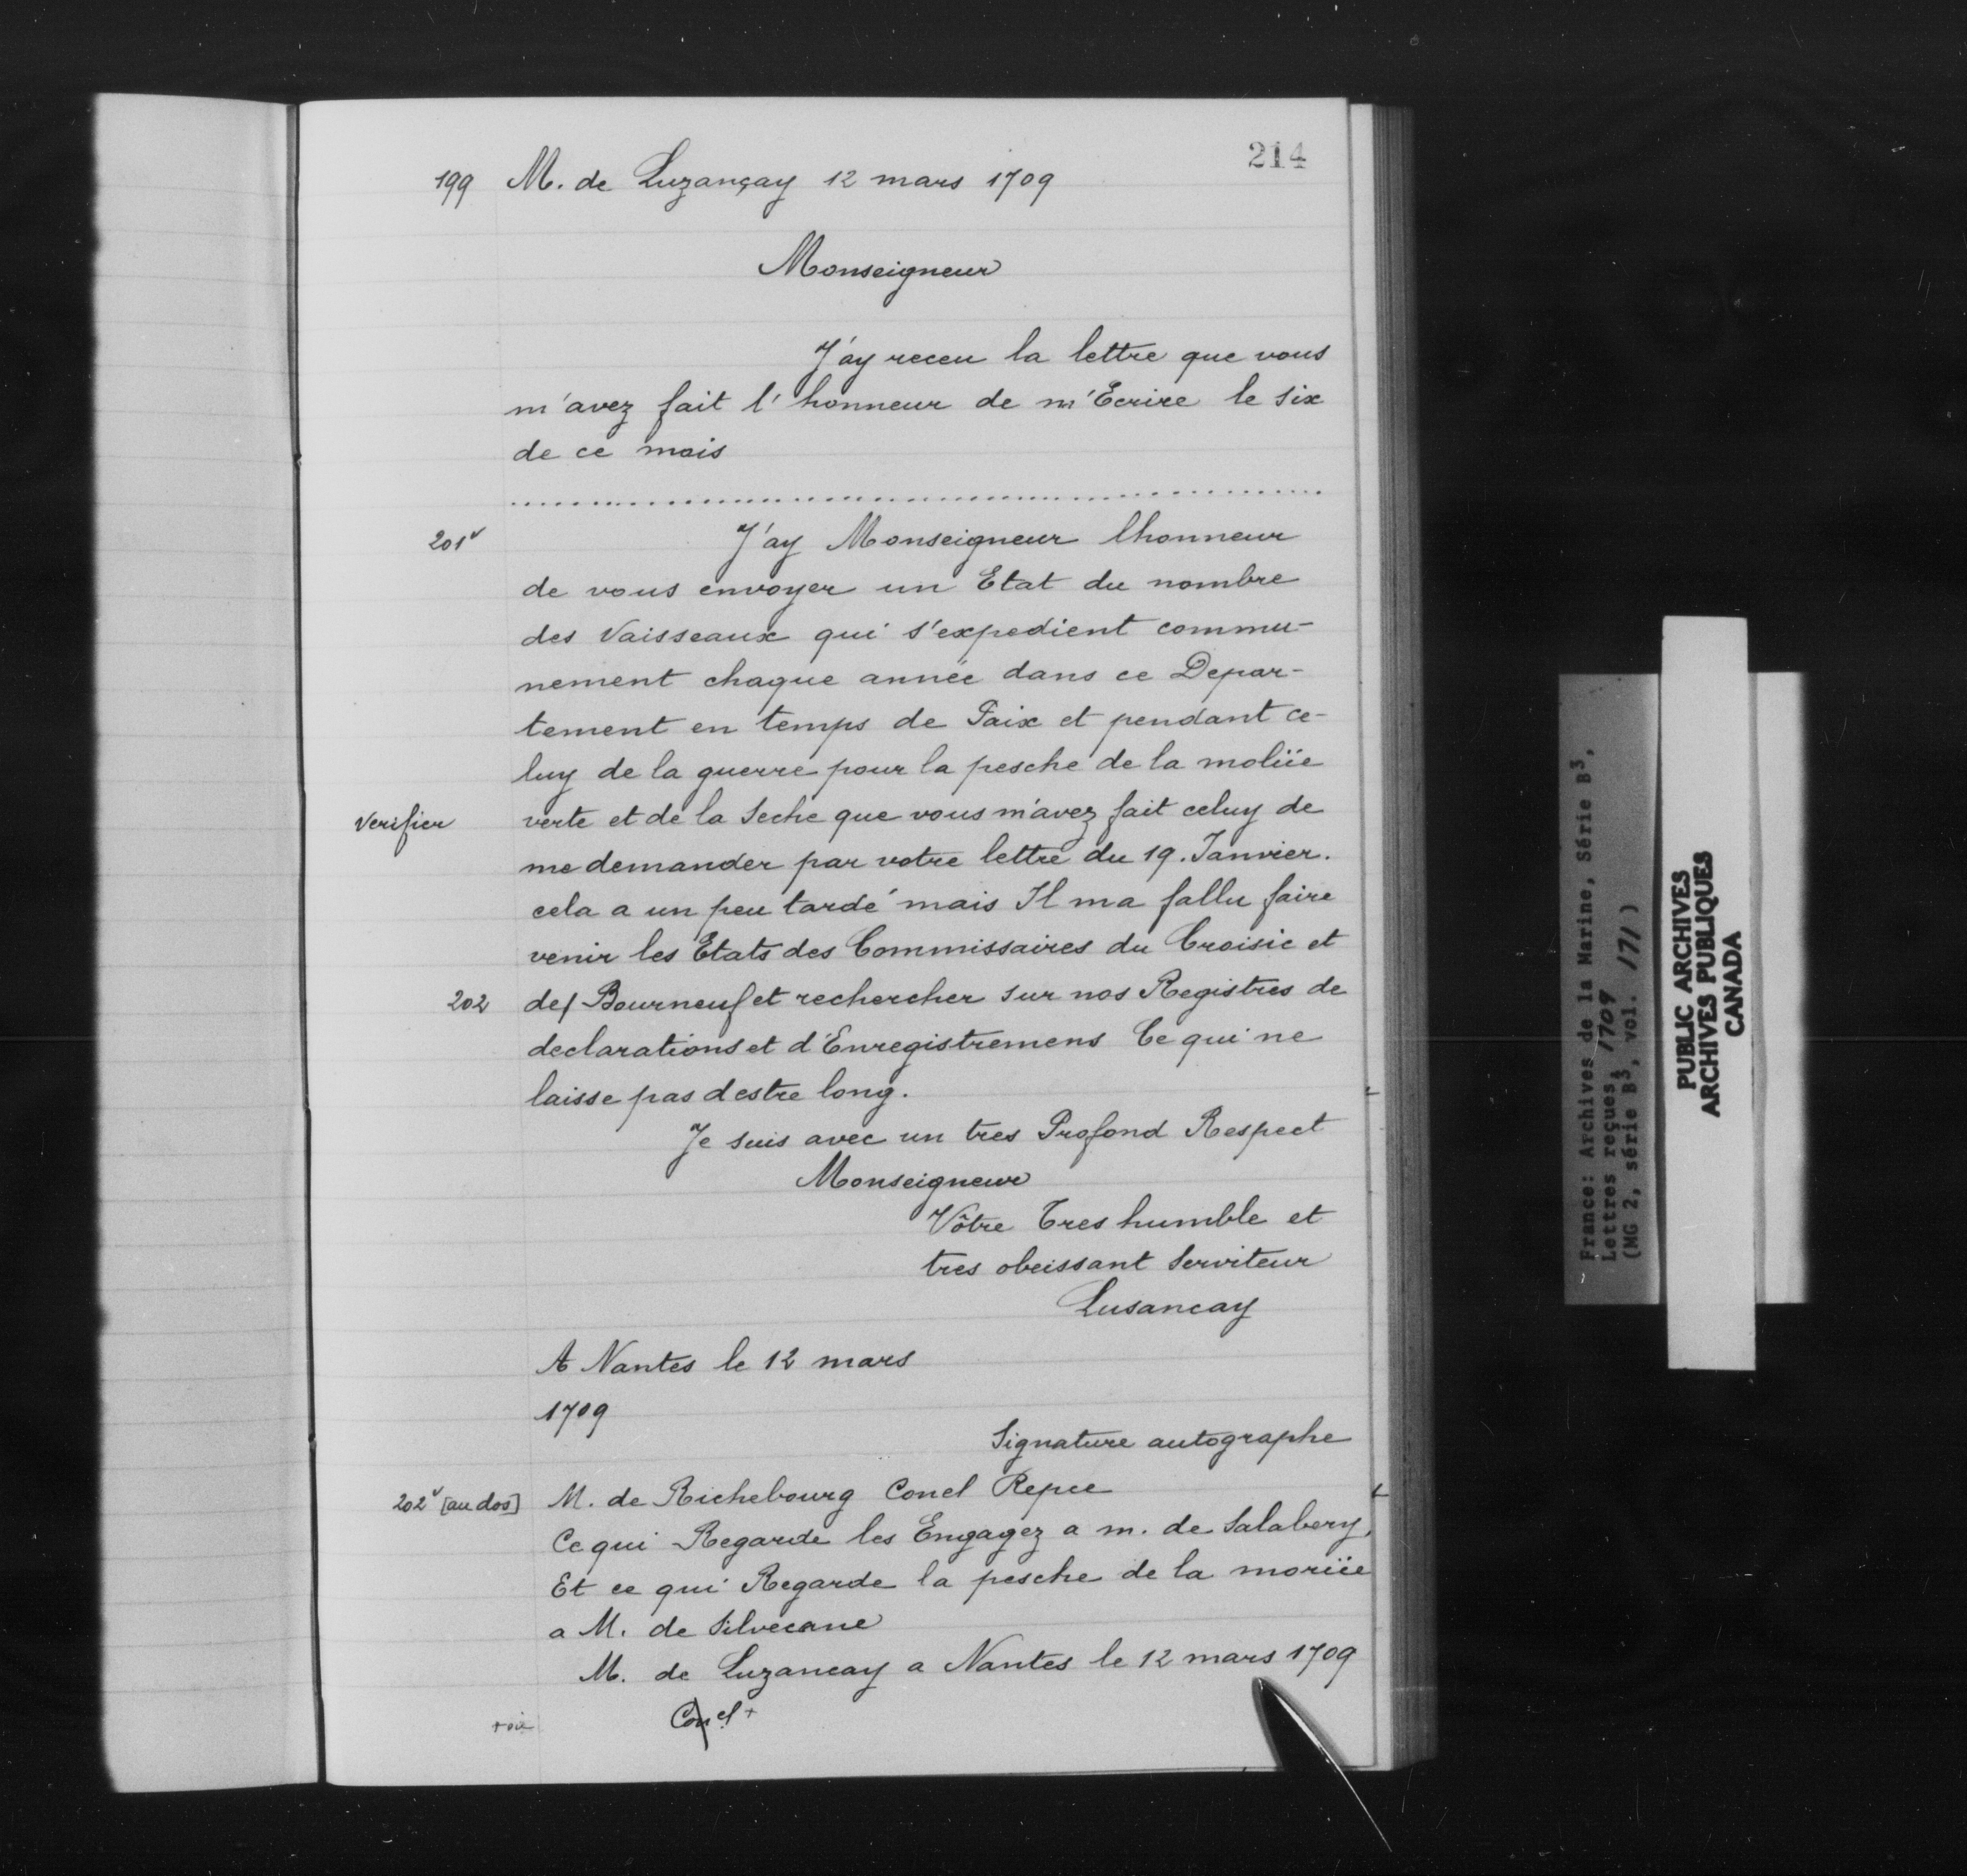 214
199 M. de Luzançay 12 mars 1709
Monseigneur
J'ay receu la lettre que vous
m'avez fait l'honneur de m'Ecrire le six
de ce mois
201v J'ay Monseigneur lhonneur
de vous envoyer un Etat du nombre
des Vaisseaux qui s'expedient commu-
nement chaque année dans ce Depar-
tement en temps de Paix et pendant ce-
luy de la guerre pour la pesche de la moliie
Verifier verte et de la Seche que vous m'avez fait celuy de
me demander par votre lettre du 19. Janvier.
cela a un peu tardé mais Il ma fallu faire
venir les Etats des Commissaires du Croisic et
202 de/ Bourneuf et rechercher sur nos Registres de
declarations et d'Enregistremens Ce qui ne
laisse pas destre long.
Je suis avec un tres Profond Respect
Monseigneur
Vôtre Tres humble et
tres obeissant Serviteur
Lusancay
A Nantes le 12 mars
1709
Signature autographe
202v [au dos] M. de Richebourg Conel Repce
Ce qui Regarde les Engagez a m. de Salabery,
Et ce qui Regarde la pesche de la moriie
a M. de Silvecane
M. de Luzancay a Nantes le 12 mars 1709
Conel +
France: Archives de la Marine, Série B3,
Lettres reçues, 1709
(MG 2, série B3, vol. 171)
PUBLIC ARCHIVES
ARCHIVES PUBLIQUES
CANADA